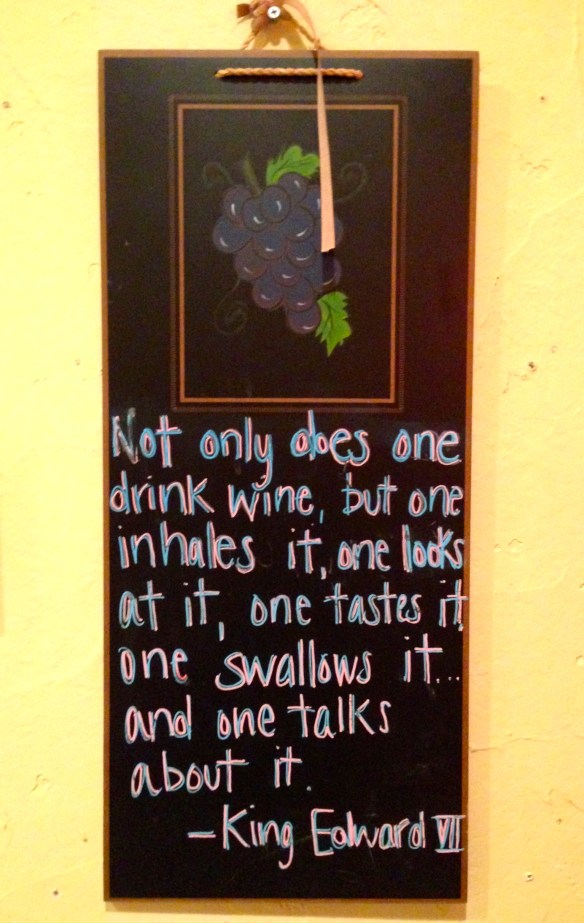 Not only does one
drink wine, but one
inhales it, one looks
at it, one tastes it
one swallows it...
and one talks
about it.
-King Edward VII